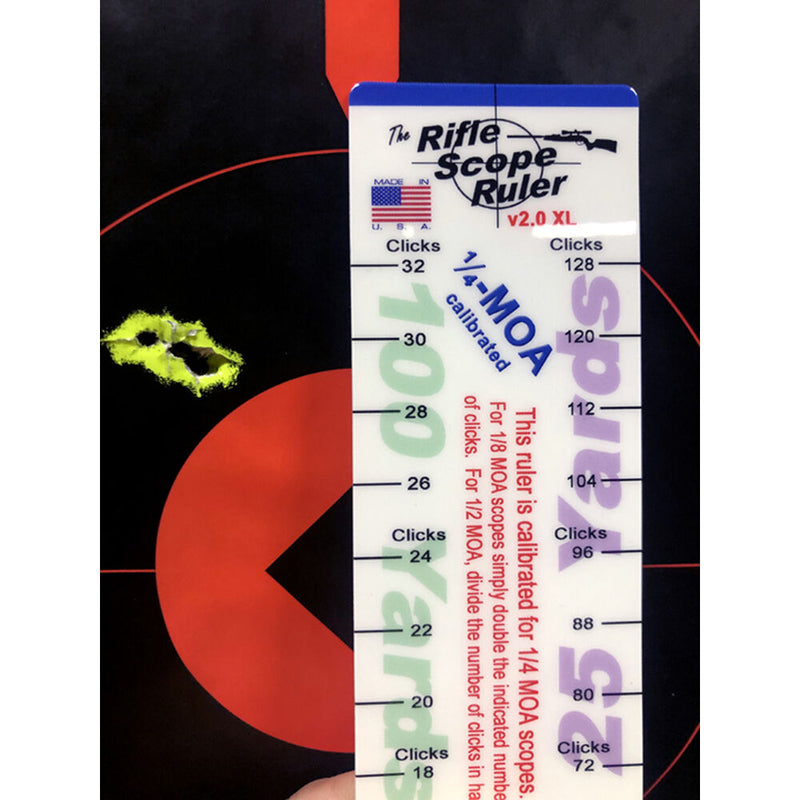 The Rifle
Scope
Ruler
v2.0 XL
MADE IN
U. S. A.
Clicks
32
30
28
26
Clicks
24
22
20
Clicks
18
100 Yards
1/4-MOA
calibrated
This ruler is calibrated for 1/4 MOA scopes.
For 1/8 MOA scopes simply double the indicated
of clicks. For 1/2 MOA, divide the number of clicks in
Clicks
128
120
112
104
Clicks
96
88
80
Clicks
72
25 Yards